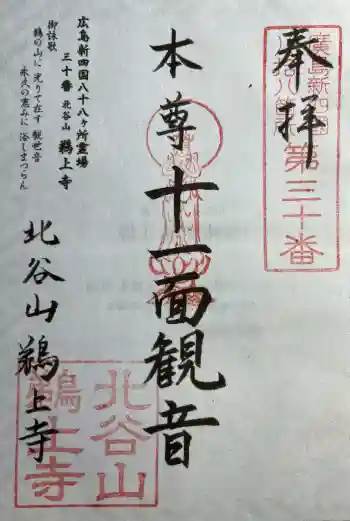 奉拝
廣島新四國
八十八ヶ所
第三十番
本尊十一面観音
広島新四国八十八ヶ所霊場
三十番 北谷山 鵜上寺
御詠歌
鵜の山に 光りて在す 観世音
永久の恵みに 浴しまつらん
北谷山 鵜上寺
北谷山
鵜上寺